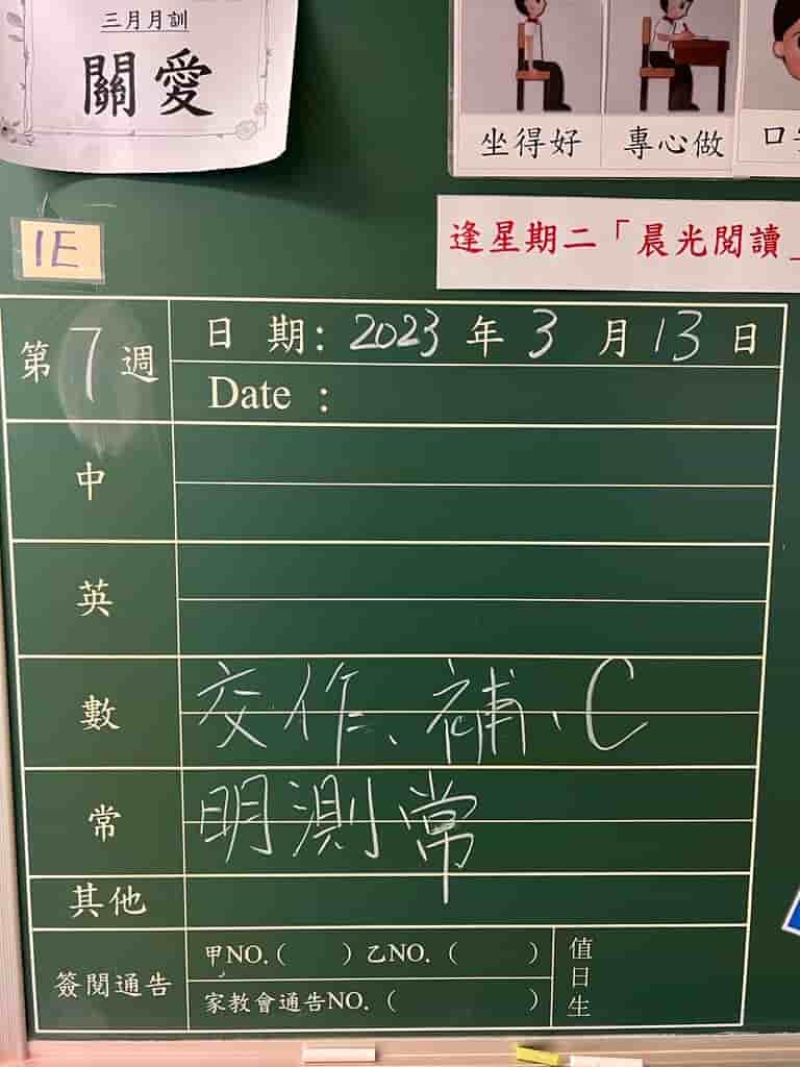 三月月訓
關愛
坐得好
專心做
口
1E
逢星期二「晨光閱讀」
第7週
日期：2023年3月13日
Date：
中
英
數
交作、補、C
常
明測常
其他
簽閱通告
甲NO.( ) 乙NO.( )
家教會通告NO.( )
值日生